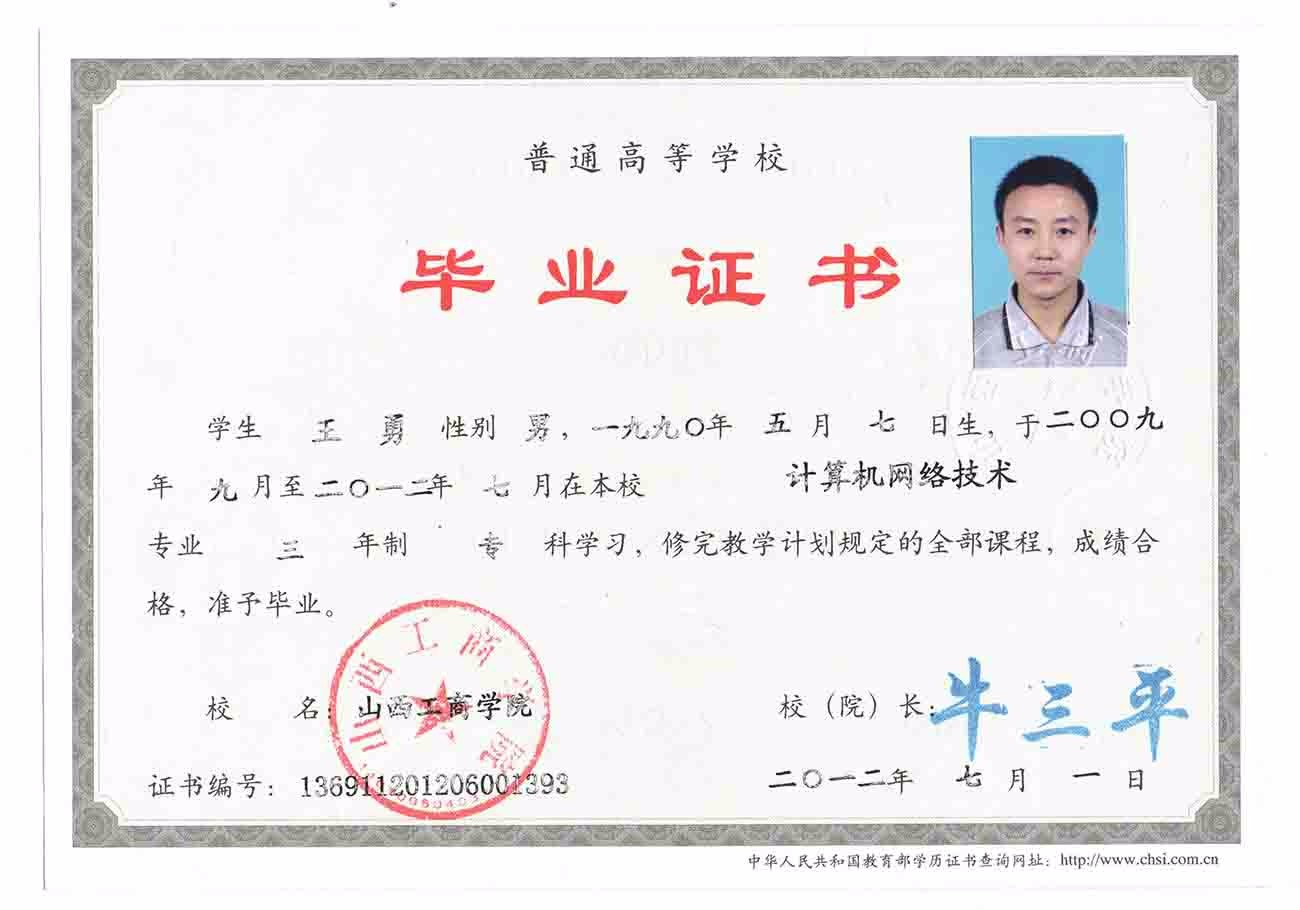 普通高等学校
毕业证书
学生 王勇 性别 男，一九九〇年 五月 七日生，于二〇〇九
年 九月至二〇一二年 七月在本校 计算机网络技术
专业 三 年制 专 科学习，修完教学计划规定的全部课程，成绩合
格，准予毕业。
山西工商学院
校 名：山西工商学院 校（院）长：牛三平
证书编号：136911201206001393 二〇一二年 七月 一日
中华人民共和国教育部学历证书查询网址：http://www.chsi.com.cn